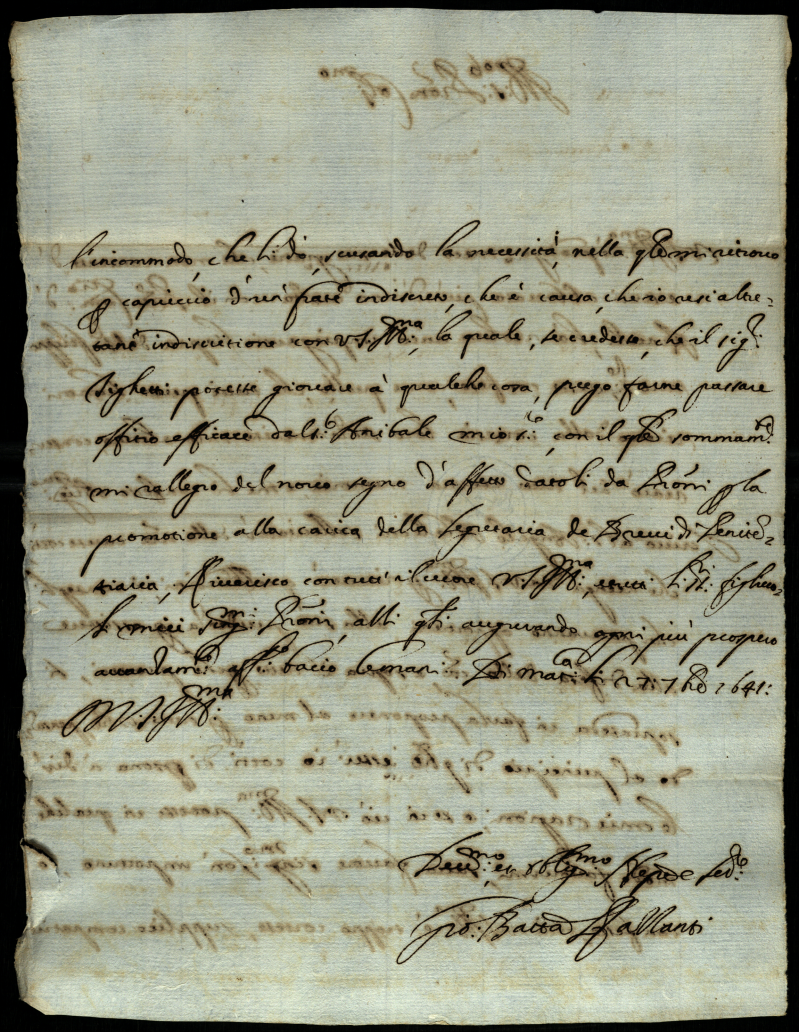 l'incommodo, che li dò, scusando la necessità, nella qle mi ritrovo
capriccio d'un frate indiscreto, che è causa, che io usi altre-
tant' indiscretione con V.S. Ill.ma, la quale, se credesse, che il sig.r
Righetti potesse giovare à qualche cosa, prego farne passare
offitio efficace dal s.r Anibale mio s.re, con il qle sommam.te
mi rallegro del novo segno d'affetto datoli da Pròni p la
promotione alla carica della segretaria de Brevi di Penite-
tiaria, Riverisco con tutt' il cuore V.S. Ill.ma, et tutti li SS.ri figliuo-
li miei sing.ri Pròni, alli qli augurando ogni più prospero
avanzam.to aff.te bacio le mani. Di li 27: 7bre 1641:
V.S. Ill.ma
Dev.mo et oblig.mo Ser.re
Gio: Batta